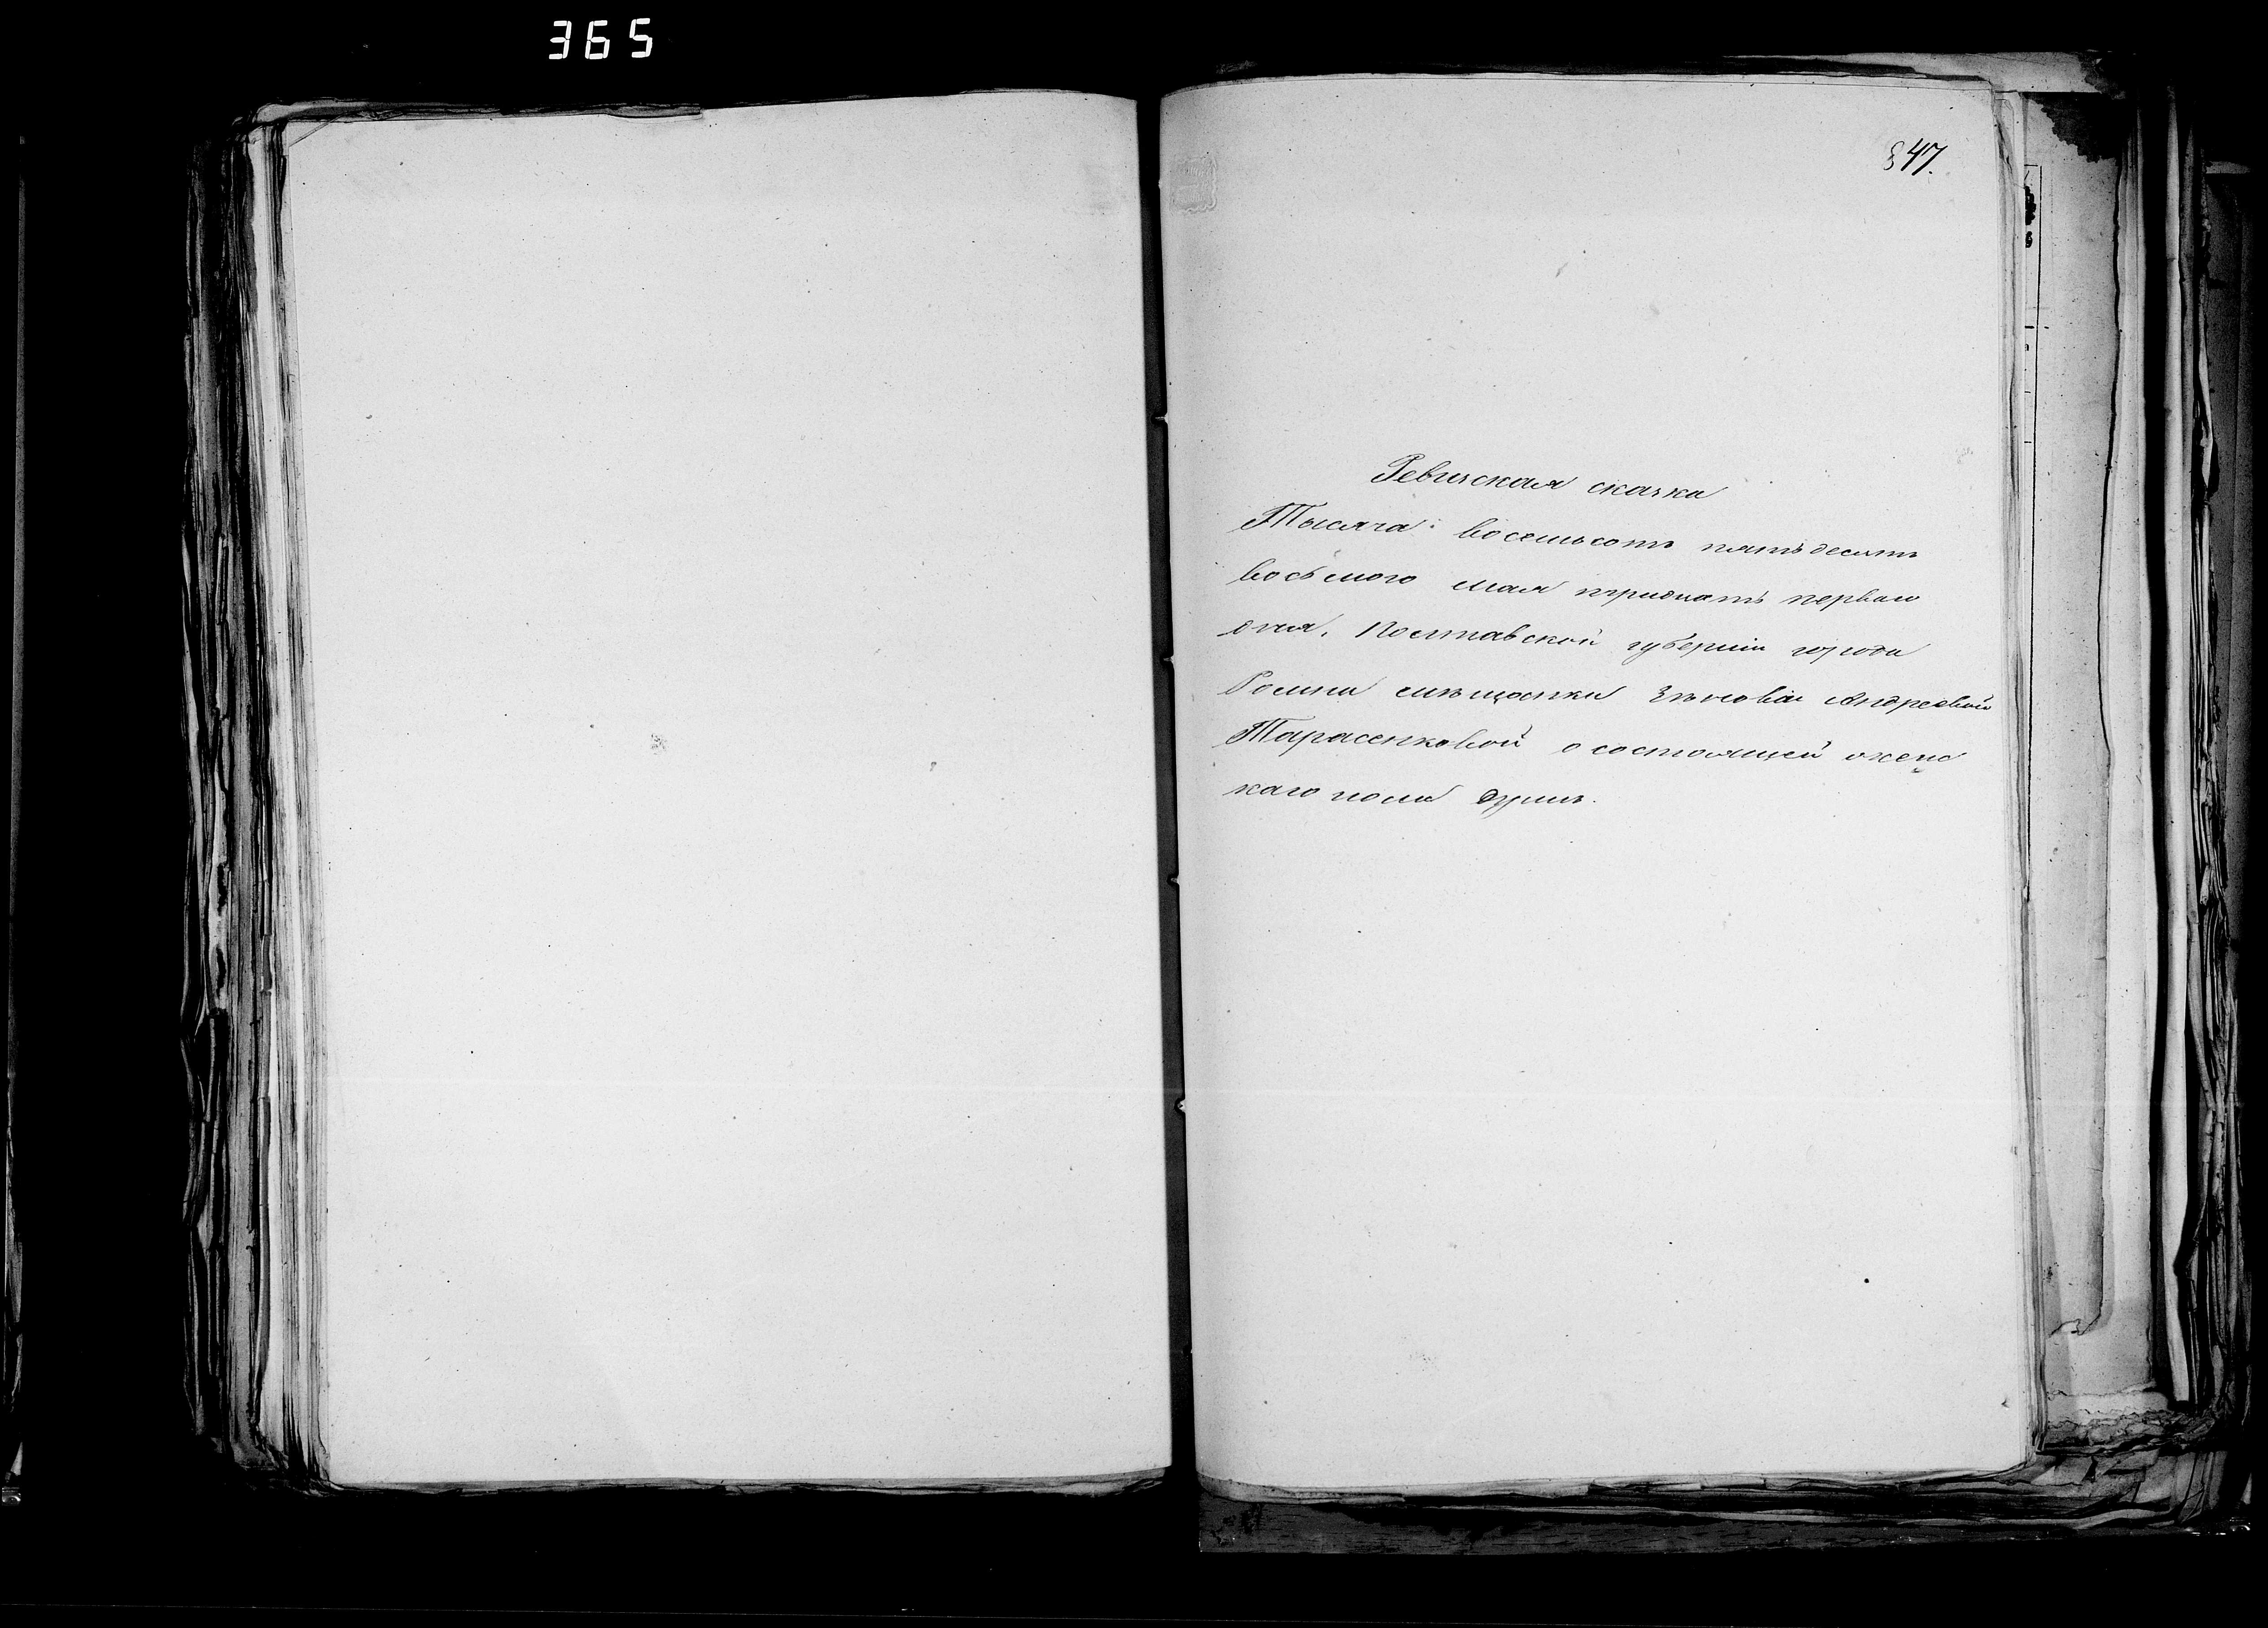 365
847.
Ревизская сказка
Тысяча восемьсотъ пятьдесятъ
восьмого мая тридцать перваго
дня, Полтавской губерніи города
Ромна мѣщанки Андреевой
Тарасенковой о состоящей женс
каго пола душѣ.